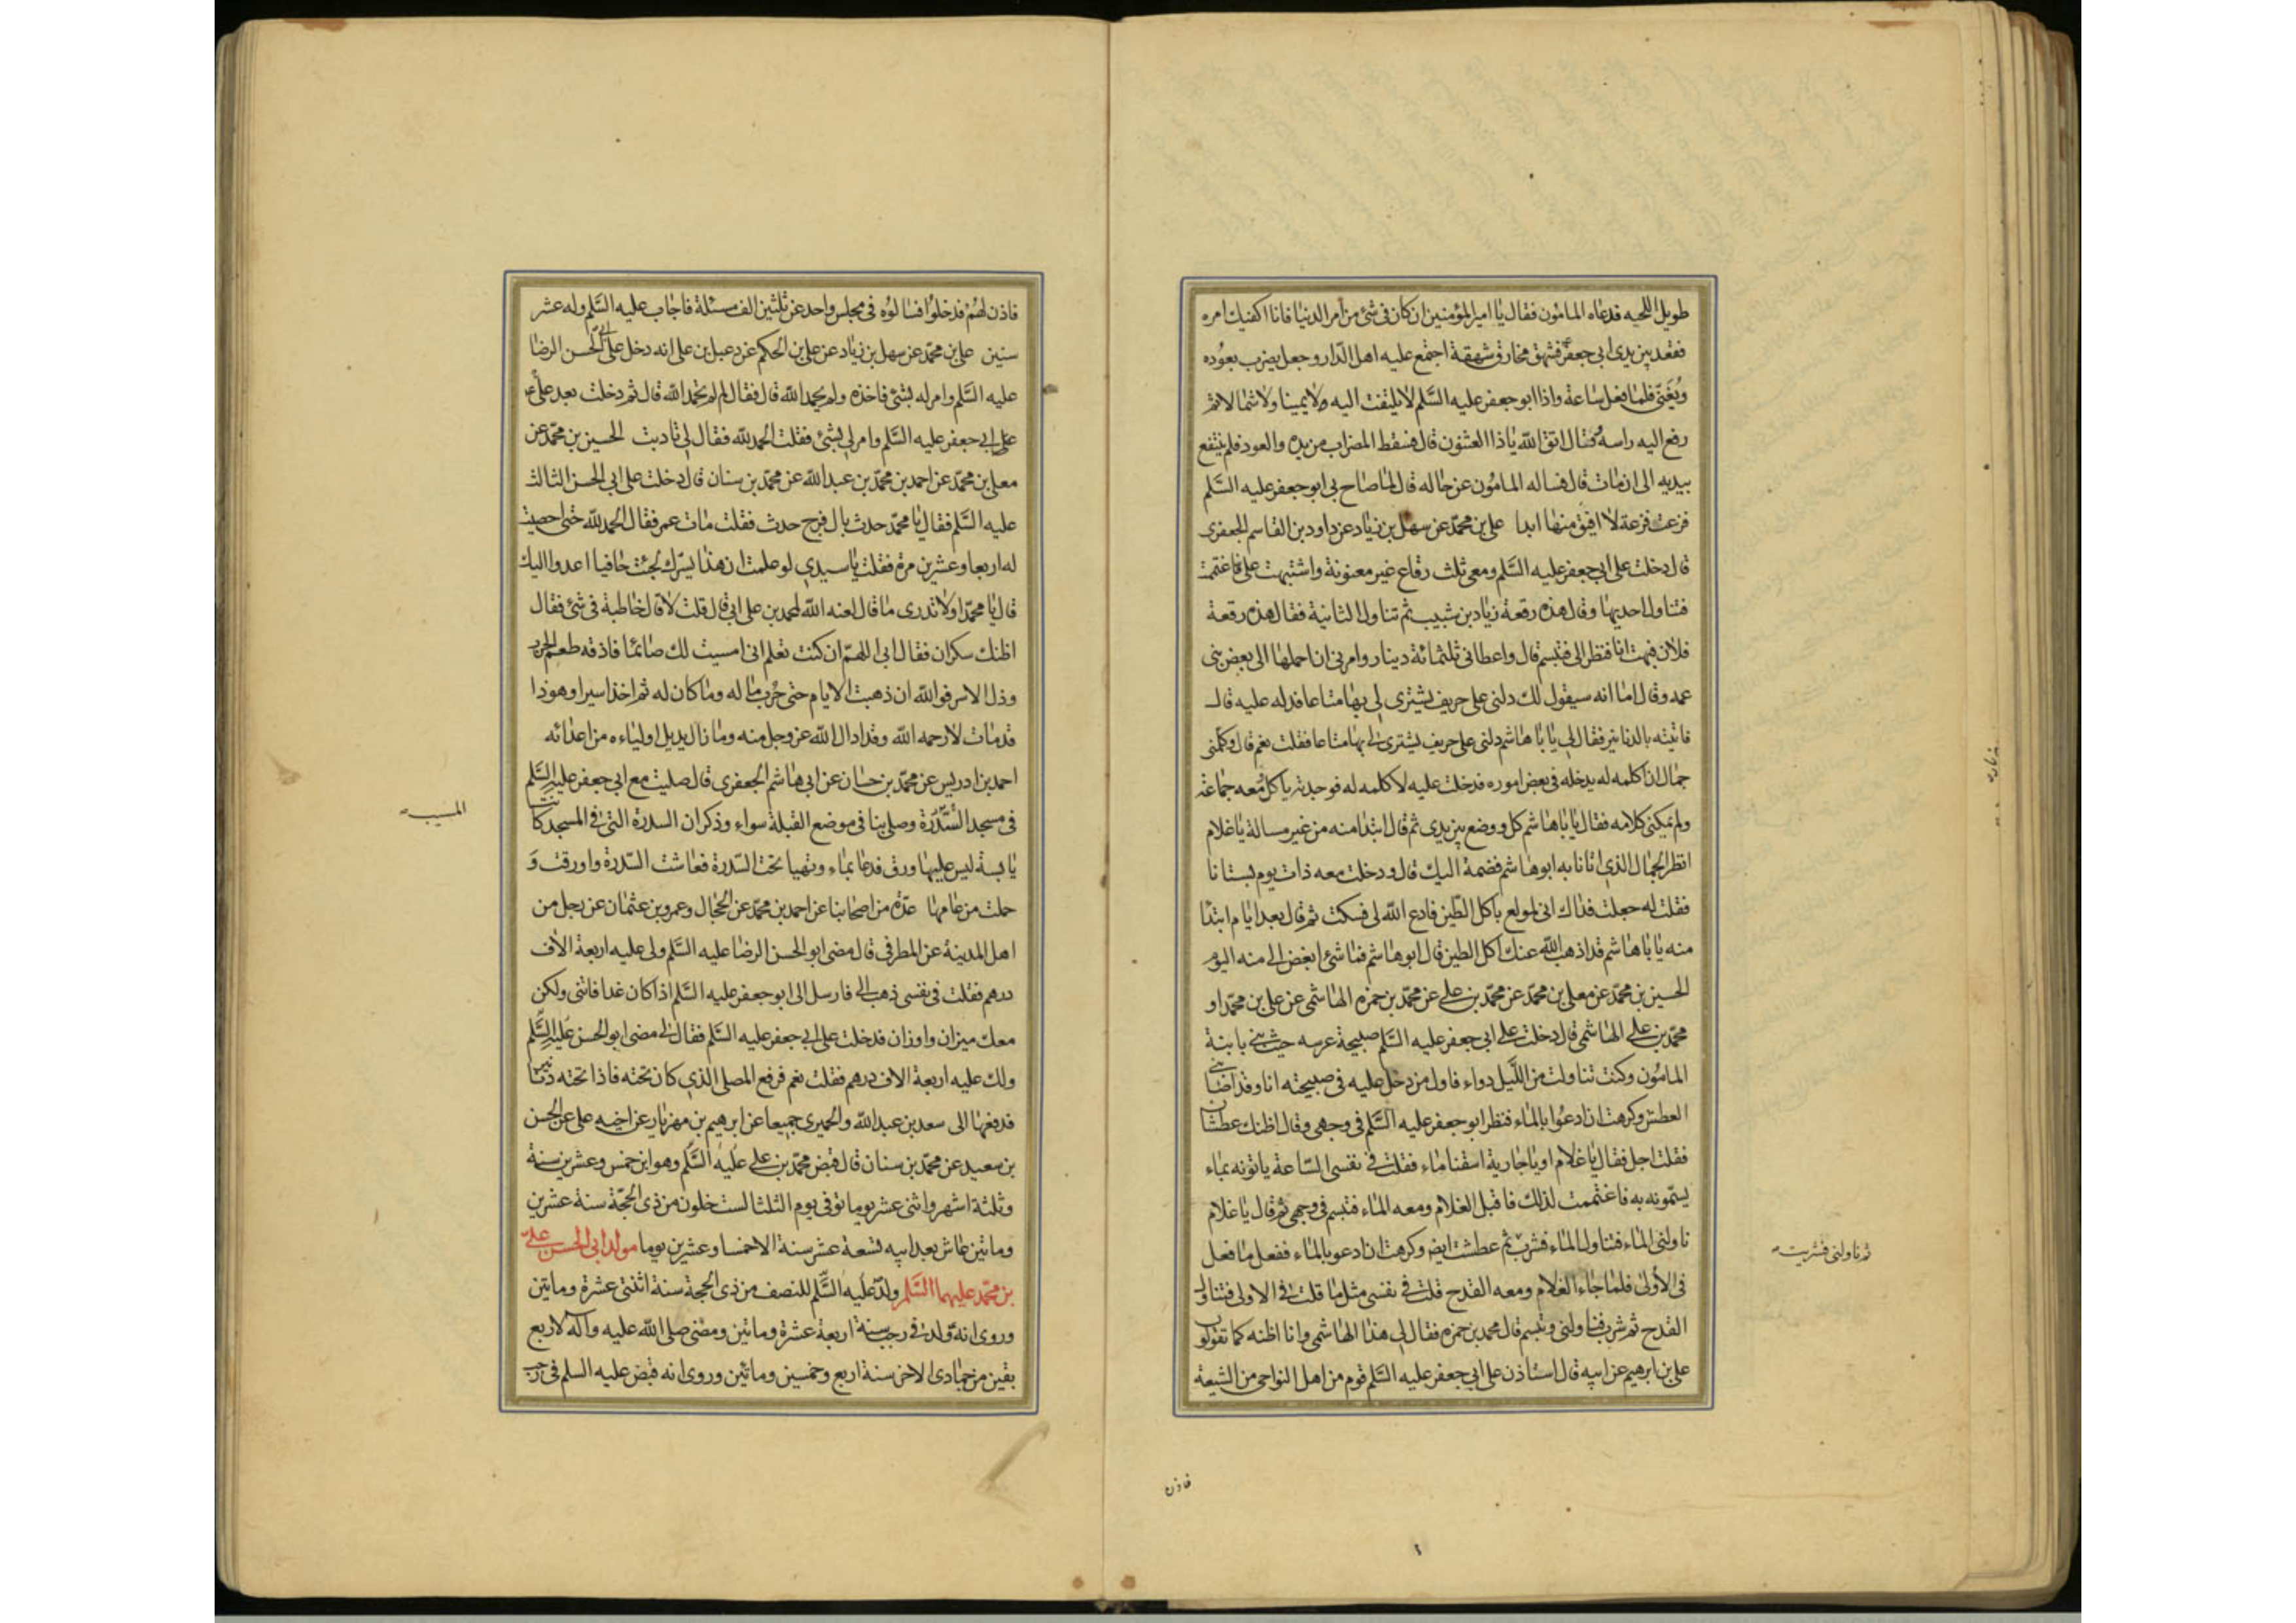 طويل اللحيه فدعاه المامون فقال يا امير المؤمنين ان كان فى شئ من امر الدنيا فانا اكفيك امره
فقعد بين يدى ابى جعفر ع فشهق مخارق شهقة اجتمع عليه اهل الدار وجعل يضرب بعوده
ويغنى فلما فعل ساعة واذا ابو جعفر عليه السلم لا يلتفت اليه ولا يمينا ولا شمالا ثم
رفع اليه راسه وقال اتق الله يا ذا العثنون قال فسقط المضراب من يده والعود فلم ينتفع
بيديه الى ان مات قال فساله المامون عن حاله قال لما صاح بى ابو جعفر عليه السلم
فزعت فزعة لا افيق منها ابدا على بن محمد عن سهل بن زياد عن داود بن القاسم الجعفرى
قال دخلت على ابى جعفر عليه السلم ومعى ثلث رقاع غير معنونة واشتبهت على فاغتممت
فتناول احديها وقال هذه رقعة زياد بن شبيب ثم تناول الثانية فقال هذه رقعة
فلان فبهت انا فنظر الى فتبسم قال واعطانى ثلثمائة دينار وامرنى ان احملها الى بعض بنى
عمه وقال اما انه سيقول لك دلنى على حريف يشترى لى بها متاعا فدله عليه قال
فاتيته بالدنانير فقال لى يا با هاشم دلنى على حريف يشترى لى بها متاعا فقلت نعم قال وكلمنى
جمال ان اكلمه له يدخله فى بعض اموره فدخلت عليه لاكلمه له فوجدته ياكل ومعه جماعة
ولم يمكنى كلامه فقال يا با هاشم كل ووضع بين يدى ثم قال ابتدا منه من غير مسالة يا غلام
انظر الجمال الذى اتانا به ابو هاشم فضمه اليك قال ودخلت معه ذات يوم بستانا
فقلت له جعلت فداك انى لمولع باكل الطين فادع الله لى فسكت ثم قال بعد ايام ابتدا
منه يا با هاشم قد اذهب الله عنك اكل الطين قال ابو هاشم فما شئ ابغض الى منه اليوم
الحسين بن محمد عن معلى بن محمد عن محمد بن على عن محمد بن حمزه الهاشمى عن على بن محمد او
محمد بن على الهاشمى قال دخلت على ابى جعفر عليه السلم صبيحة عرسه حيث بنى بابنة
المامون وكنت تناولت من الليل دواء فاول من دخل عليه فى صبيحته انا وقد اصابنى
العطش وكرهت ان ادعوا بالماء فنظر ابو جعفر عليه السلم فى وجهى وقال اظنك عطشان
فقلت اجل فقال يا غلام او يا جارية اسقنا ماء فقلت فى نفسى الساعة ياتونه بماء
يسمونه به فاغتممت لذلك فاقبل الغلام ومعه الماء فتبسم فى وجهى ثم قال يا غلام
ناولنى الماء فتناول الماء فشرب ثم عطشت ايض وكرهت ان ادعو بالماء ففعل ما فعل
فى الأولى فلما جاء الغلام ومعه القدح قلت فى نفسى مثل ما قلت فى الاولى فتناول
القدح ثم شرب فناولنى وتبسم قال محمد بن حمزه فقال لى هذا الهاشمى وانا اظنه كما تقولون
على بن ابرهيم عن ابيه قال استاذن على ابى جعفر عليه السلم قوم من اهل النواحى من الشيعة
ثم ناولنى فشربت
فاذن
فاذن لهم فدخلوا فسالوه فى مجلس واحد عن ثلثين الف مسئلة فاجاب عليه السلم وله عشر
سنين على بن محمد عن سهل بن زياد عن على بن الحكم عن دعبل بن على انه دخل على ابى الحسن الرضا
عليه السلم وامر له بشئ فاخذه ولم يحمد الله قال فقال لم لم تحمد الله قال ثم دخلت بعد على
على ابى جعفر عليه السلم وامر لى بشئ فقلت الحمد لله فقال لى تادبت الحسين بن محمد عن
معلى بن محمد عن احمد بن محمد بن عبد الله عن محمد بن سنان قال دخلت على ابى الحسن الثالث
عليه السلم فقال يا محمد حدث بال فرج حدث فقلت مات عمر فقال الحمد لله حتى احصيت
له اربعا وعشرين مرة فقلت يا سيدى لو علمت ان هذا يسرك لجئت حافيا اعدوا اليك
قال يا محمد اولا تدرى ما قال لعنه الله لمحمد بن على ابى قال قلت لا قال خاطبة فى شئ فقال
اظنك سكران فقال ابى اللهم ان كنت تعلم انى امسيت لك صائما فاذقه طعم الحرب
وذل الاسر فوالله ان ذهبت الايام حتى حرب ماله وما كان له ثم اخذ اسيرا وهو ذا
قد مات لا رحمه الله وقد ادال الله عز وجل منه وما زال يديل اولياءه من اعدائه
احمد بن ادريس عن محمد بن حسان عن ابى هاشم الجعفرى قال صليت مع ابى جعفر عليه السلم
فى مسجد السدرة وصلى بنا فى موضع القبلة سواء وذكر ان السدرة التى فى المسجد كانت
يابسة ليس عليها ورق فدعا بماء وتهيا تحت السدرة فعاشت السدرة واورقت و
حملت من عامها عدة من اصحابنا عن احمد بن محمد عن الحجال وعمرو بن عثمان عن رجل من
اهل المدينة عن المطرفى قال مضى ابو الحسن الرضا عليه السلم ولى عليه اربعة الاف
درهم فقلت فى نفسى ذهب مالى فارسل الى ابو جعفر عليه السلم اذا كان غدا فاتنى وليكن
معك ميزان واوزان فدخلت على ابى جعفر عليه السلم فقال لى مضى ابو الحسن عليه السلم
ولك عليه اربعة الاف درهم فقلت نعم فرفع المصلى الذى كان تحته فاذا تحته دنانير
فدفعها الى سعد بن عبد الله والحميرى جميعا عن ابرهيم بن مهزيار عن اخيه على عن الحسن
بن سعيد عن محمد بن سنان قال قبض محمد بن على عليه السلم وهو ابن خمس وعشرين سنة
وثلثة اشهر واثنى عشر يوما توفى يوم الثلثا لست خلون من ذى الحجة سنة عشرين
وماتين عاش بعد ابيه تسعة عشر سنة الا خمسا وعشرين يوما مولد ابى الحسن على
بن محمد عليهما السلم ولد عليه السلم للنصف من ذى الحجة سنة اثنتى عشرة وماتين
وروى انه ولد فى رجب سنة اربعة عشرة وماتين ومضى صلى الله عليه واله لاربع
بقين من جمادى الاخر سنة اربع وخمسين وماتين وروى انه قبض عليه السلم فى رجب
المسيب